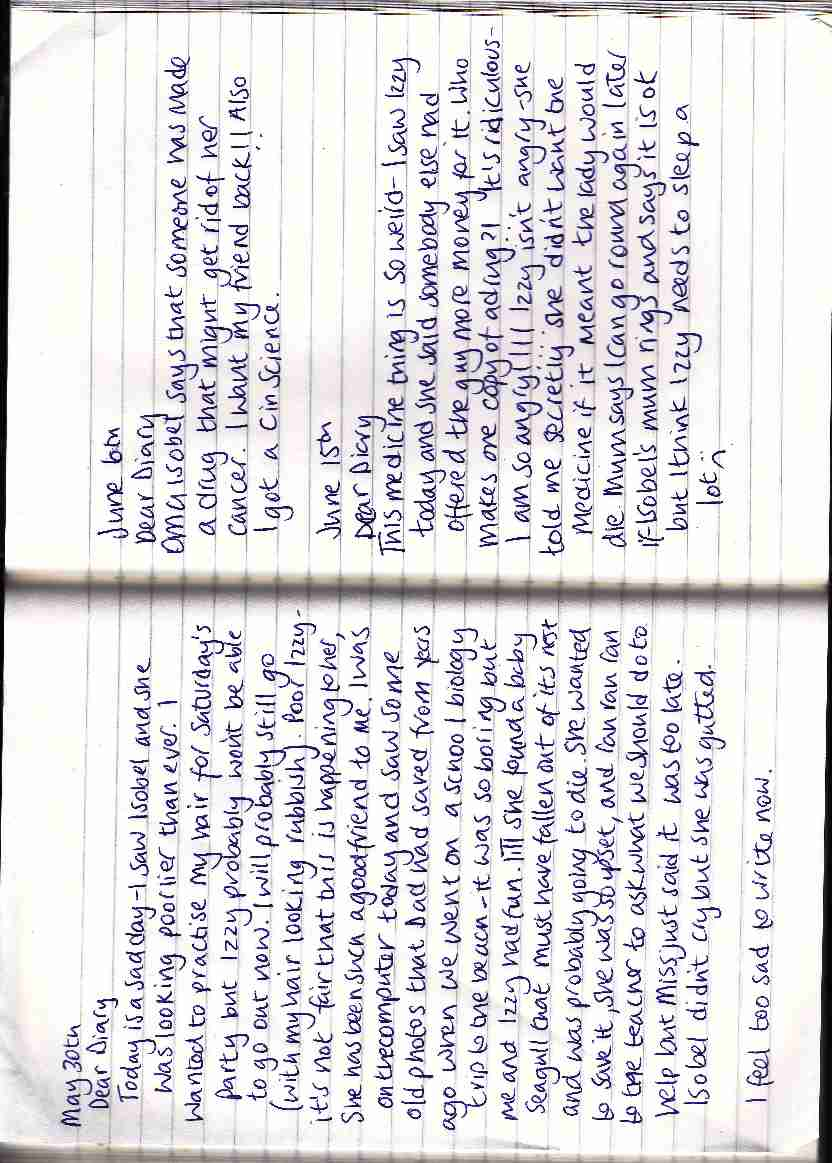 May 30th
Dear Diary
Today is a sad day - I saw Isobel and she
was looking poorlier than ever. I
wanted to practise my hair for Saturday's
party but Izzy probably won't be able
to go out now. I will probably still go
(with my hair looking rubbish). Poor Izzy-
it's not fair that this is happening to her,
She has been such a good friend to me. I was
on the computer today and saw some
old photos that Dad had saved from years
ago when we went on a school biology
trip to the beach - it was so boring but
me and Izzy had fun. Till she found a baby
Seagull that must have fallen out of its nest
and was probably going to die. She wanted
to save it, she was so upset, and ran ran ran
to the teacher to ask what we should do to
help but Miss just said it was too late.
Isobel didn't cry but she was gutted.
I feel too sad to write now.
June 6th
Dear Diary
OMG Isobel says that someone has made
a drug that might get rid of her
cancer. I want my friend back!! Also
I got a C in Science.
June 15th
Dear Diary
This medicine thing is so weird - I saw Izzy
today and she said somebody else had
offered the guy more money for it. Who
makes one copy of a drug?! It's ridiculous-
I am so angry!!!! Izzy isn't angry - she
told me secretly she didn't want the
medicine if it meant the lady would
die. Mum says I can go round again later
if Isobel's mum rings and says it is ok
but I think Izzy needs to sleep a
lot